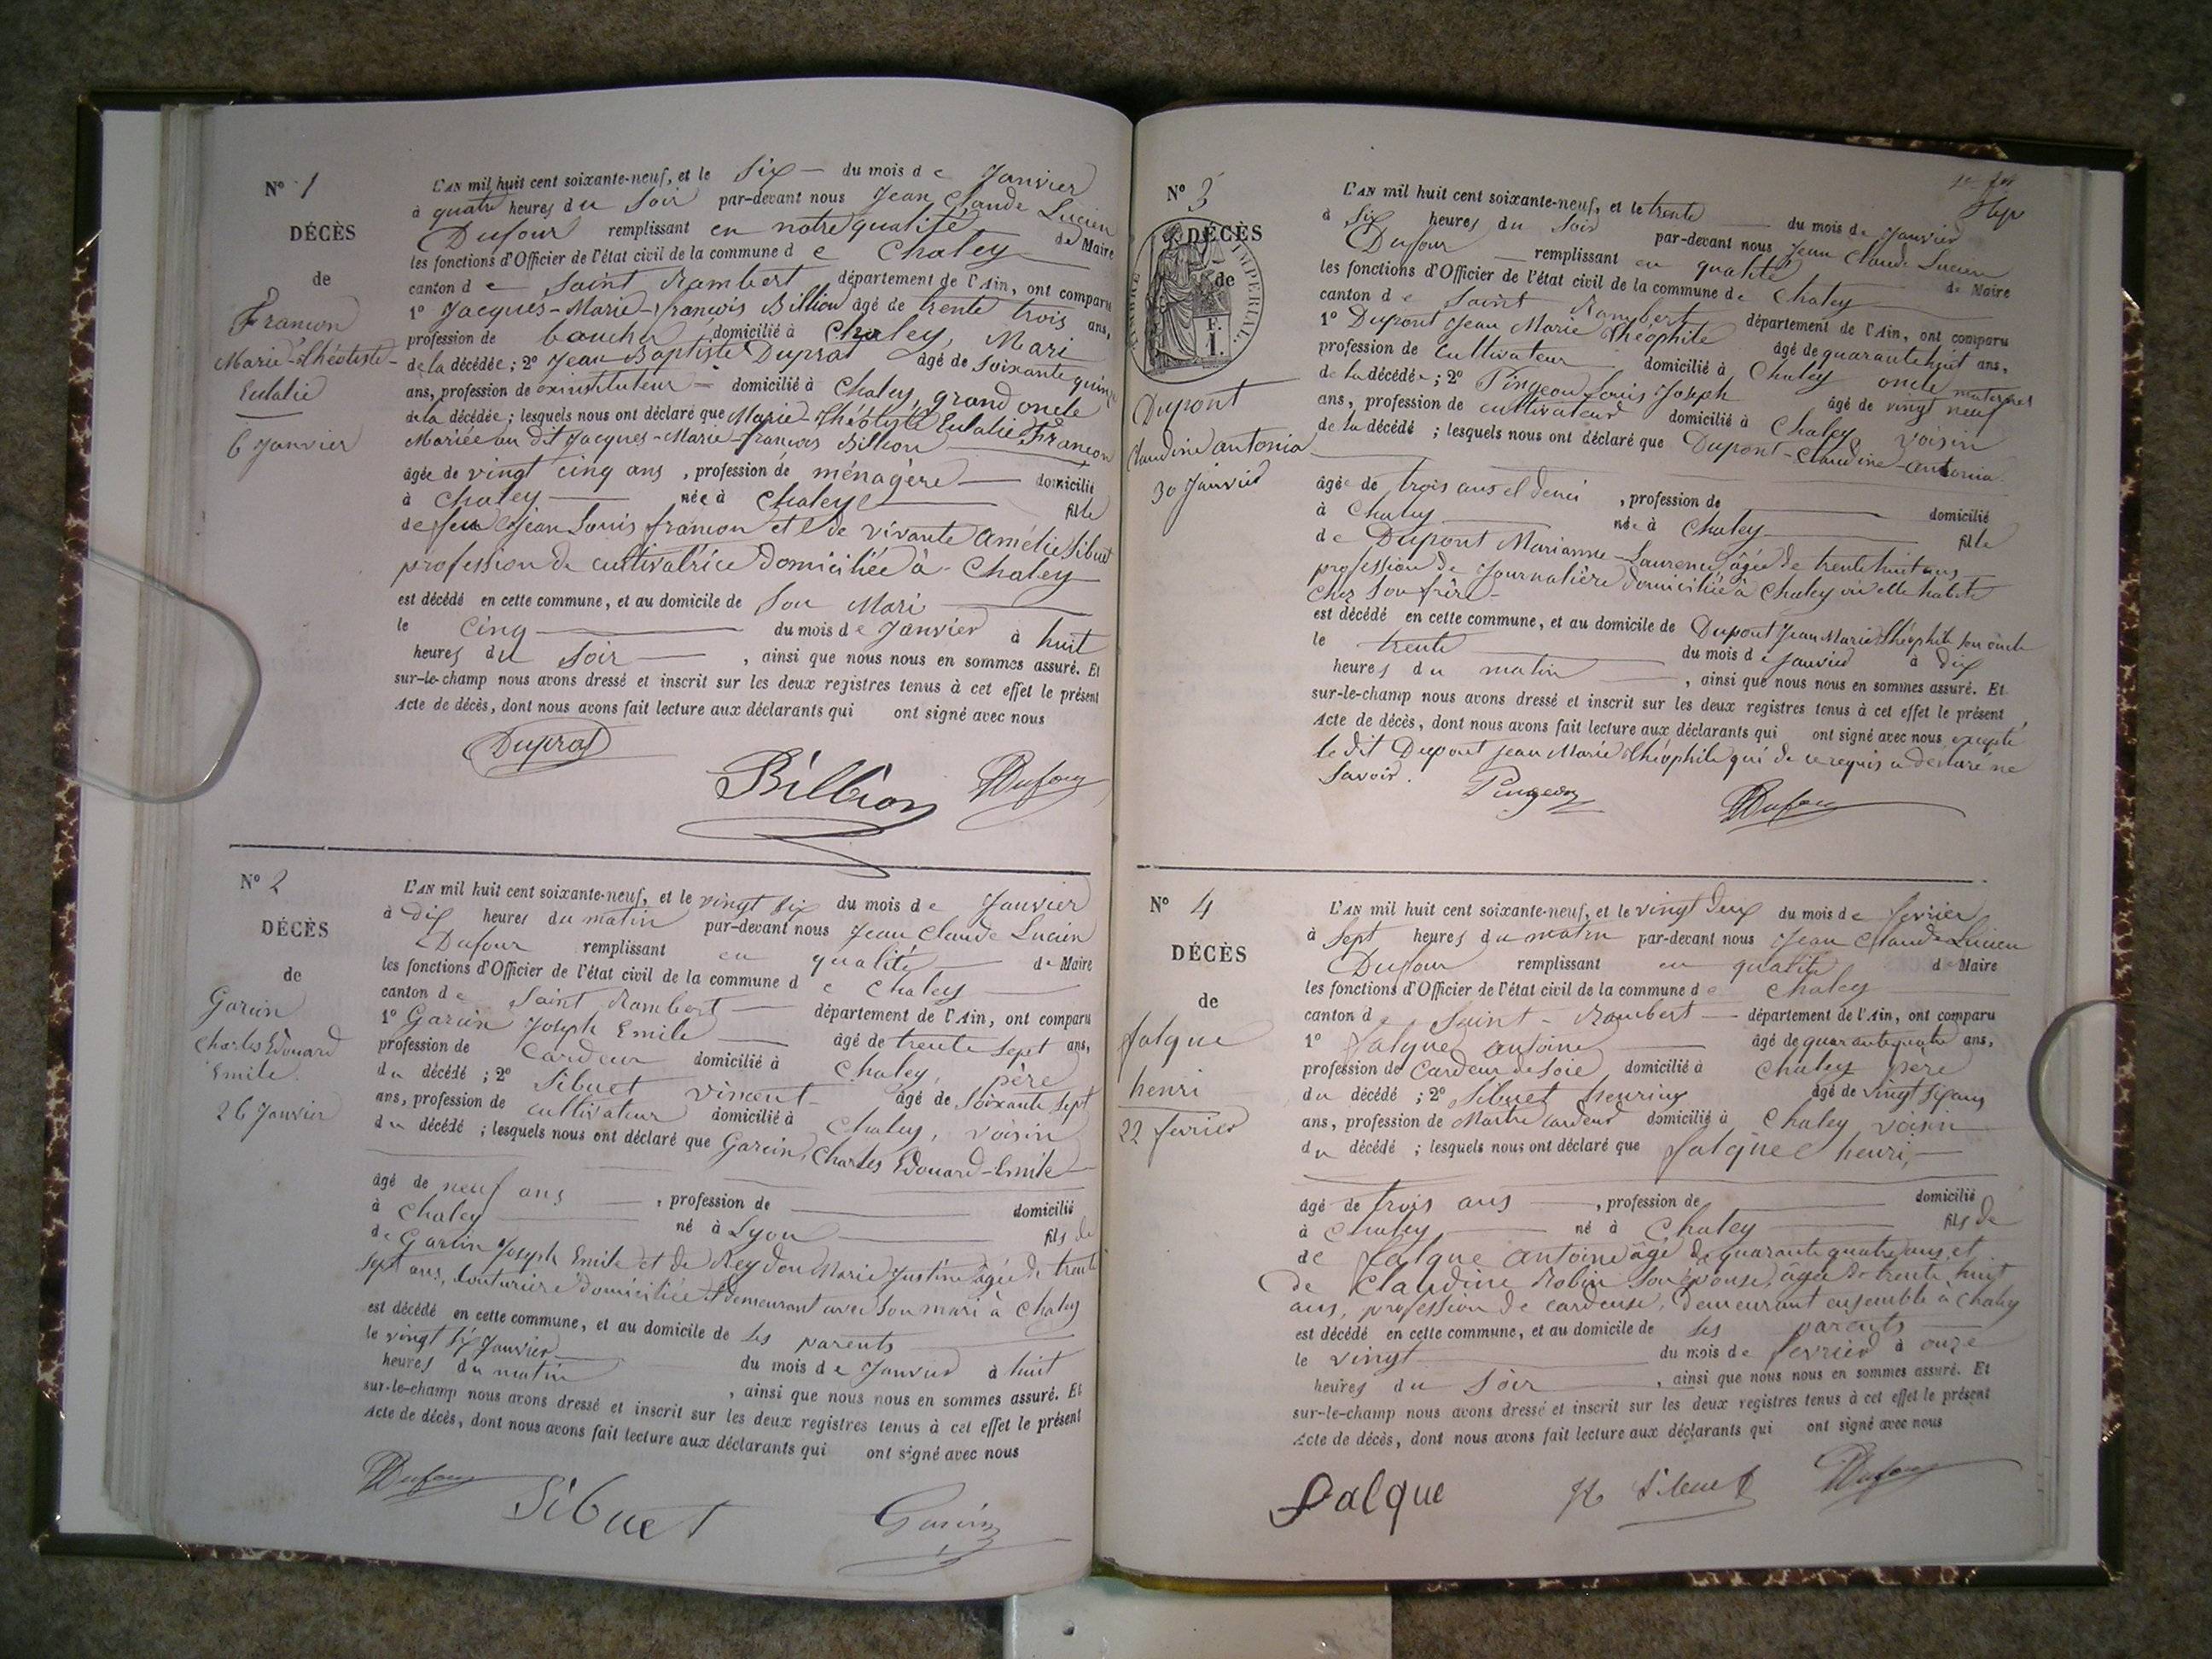 N° 1
DÉCÈS
de
Françon
Marie-Théotiste-
Eulalie
6 Janvier
L'AN mil huit cent soixante-neuf, et le Six du mois de Janvier
à quatre heures du Soir par-devant nous Jean Claude Lucien
Dufour remplissant en notre qualité de Maire
les fonctions d'Officier de l'état civil de la commune de Chaley
canton de Saint Rambert département de l'Ain, ont comparu
1° Jacques-Marie-françois Billion âgé de trente trois ans,
profession de boucher domicilié à Chaley, Mari
de la décédée ; 2° Jean Baptiste Duprat âgé de Soixante quinze
ans, profession de exinstituteur domicilié à Chaley, grand oncle
de la décédée ; lesquels nous ont déclaré que Marie-Théotiste Eulalie Françon
Mariée au dit Jacques-Marie-françois Billion
âgée de vingt cinq ans, profession de ménagère domicilié
à Chaley née à Chaley fille
de feu Jean Louis françon et de vivante Amélie Sibuet
profession de cultivatrice domiciliée à Chaley
est décédé en cette commune, et au domicile de Son Mari
le Cinq du mois de Janvier à huit
heures du Soir, ainsi que nous nous en sommes assuré. Et
sur-le-champ nous avons dressé et inscrit sur les deux registres tenus à cet effet le présent
Acte de décès, dont nous avons fait lecture aux déclarants qui ont signé avec nous
Duprat
Billion
Dufour
N° 2
DÉCÈS
de
Garin
Charles Edouard
Emile
26 Janvier
L'AN mil huit cent soixante-neuf, et le vingt six du mois de Janvier
à dix heures du matin par-devant nous Jean Claude Lucien
Dufour remplissant en qualité de Maire
les fonctions d'Officier de l'état civil de la commune de Chaley
canton de Saint Rambert département de l'Ain, ont comparu
1° Garin Joseph Emile âgé de trente sept ans,
profession de Cardeur domicilié à Chaley, père
du décédé ; 2° Sibuet vincent âgé de Soixante sept
ans, profession de cultivateur domicilié à Chaley, voisin
du décédé ; lesquels nous ont déclaré que Garin, Charles Edouard-Emile
âgé de neuf ans, profession de domicilié
à Chaley né à Lyon fils de
de Garin Joseph Emile et de Reydon Marie Justine âgée de trente
sept ans, couturière domiciliée et demeurant avec son mari à Chaley
est décédé en cette commune, et au domicile de ses parents
le vingt six Janvier du mois de Janvier à huit
heures du matin, ainsi que nous nous en sommes assuré. Et
sur-le-champ nous avons dressé et inscrit sur les deux registres tenus à cet effet le présent
Acte de décès, dont nous avons fait lecture aux déclarants qui ont signé avec nous
Dufour
Sibuet
Garin
N° 3
DÉCÈS
de
EMPIRE
IMPÉRIAL
F.
1.
Dupont
Claudine antonia
30 Janvier
L'AN mil huit cent soixante-neuf, et le trente du mois de Janvier
à Six heures du Soir par-devant nous Jean Claude Lucien
Dufour remplissant en qualité de Maire
les fonctions d'Officier de l'état civil de la commune de Chaley
canton de Saint Rambert département de l'Ain, ont comparu
1° Dupont Jean Marie Théophile âgé de quarante huit ans,
profession de Cultivateur domicilié à Chaley oncle maternel
de la décédée ; 2° Pingeon Louis Joseph âgé de vingt neuf
ans, profession de cultivateur domicilié à Chaley, voisin
de la décédé ; lesquels nous ont déclaré que Dupont-Claudine-antonia
âgée de trois ans et demi, profession de domicilié
à Chaley née à Chaley fille
de Dupont Marianne-Laurence, âgée de trente huit ans
profession de Journalière domiciliée à Chaley où elle habite
chez son frère-
est décédé en cette commune, et au domicile de Dupont Jean Marie Théophile son oncle
le trente du mois de Janvier à dix
heures du matin, ainsi que nous nous en sommes assuré. Et
sur-le-champ nous avons dressé et inscrit sur les deux registres tenus à cet effet le présent
Acte de décès, dont nous avons fait lecture aux déclarants qui ont signé avec nous, excepté
le dit Dupont Jean Marie Théophile qui de ce requis a déclaré ne
Savoir.
Pingeon
Dufour
N° 4
DÉCÈS
de
falque
henri
22 fevrier
L'AN mil huit cent soixante-neuf, et le vingt deux du mois de fevrier
à Sept heures du matin par-devant nous Jean Claude Lucien
Dufour remplissant en qualité de Maire
les fonctions d'Officier de l'état civil de la commune de Chaley
canton de Saint-Rambert département de l'Ain, ont comparu
1° falque antoine âgé de quarante quatre ans,
profession de Cardeur de Soie domicilié à Chaley père
du décédé ; 2° Sibuet henri âgé de vingt six ans
ans, profession de Maitre cardeur domicilié à Chaley voisin
du décédé ; lesquels nous ont déclaré que falque henri,
âgé de trois ans, profession de domicilié
à Chaley né à Chaley fils de
de falque antoine âgé de quarante quatre ans, et
de Claudine Robin son épouse, âgée de trente huit
ans, profession de cardeuse, demeurant ensemble à Chaley
est décédé en cette commune, et au domicile de ses parents
le vingt du mois de fevrier à onze
heures du Soir, ainsi que nous nous en sommes assuré. Et
sur-le-champ nous avons dressé et inscrit sur les deux registres tenus à cet effet le présent
Acte de décès, dont nous avons fait lecture aux déclarants qui ont signé avec nous
falque
H Sibuet
Dufour